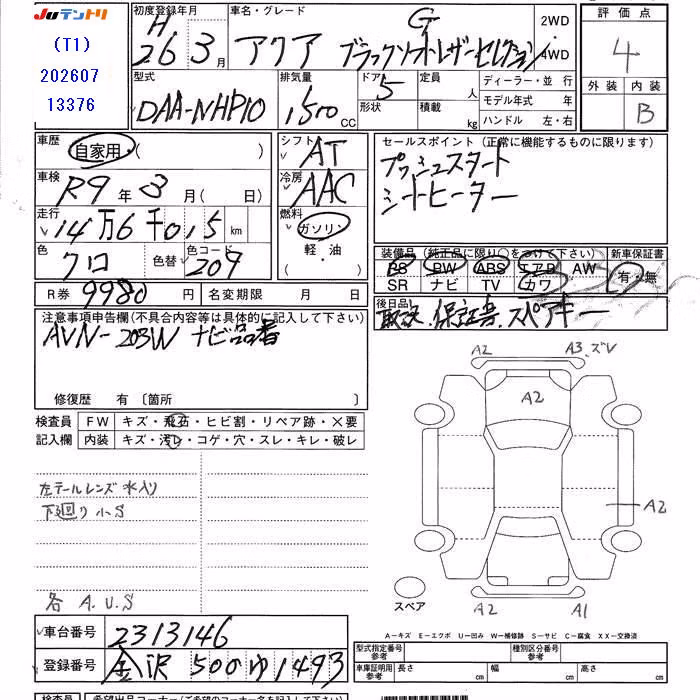 JUテントリ
(T1)
202607
13376
初度登録年月
H
26 3月
車名・グレード
アクア G ブラックソフトレザーセレクション
2WD
4WD
評価点
4
外装 内装
B
型式
DAA-NHP10
排気量
1,500
CC
ドア
5
形状
定員
人
積載
kg
ディーラー・並行
モデル年式 年
ハンドル 左・右
車歴
自家用・( )
シフト
AT
車検
R9年3月( 日)
冷房
AAC
走行
14万6千015km
燃料
ガソリン
軽・油
色
クロ
色替
色コード
209
R券 9980円
名変期限 月 日
セールスポイント (正常に機能するものに限ります)
プッシュスタート
シートヒーター
装備品 (純正品に限り○をつけて下さい)
新車保証書
PS PW ABS エアB AW
SR ナビ TV カワ
有・無
後日品
取説、保証書、スペアキー
注意事項申告欄(不具合内容等は具体的に記入して下さい)
AVN-203W ナビ品番
修復歴 有 〔箇所 〕
検査員
記入欄
FW キズ・飛石・ヒビ割・リペア跡・×要
内装 キズ・汚レ・コゲ・穴・スレ・キレ・破レ
左テールレンズ水入り
下廻り小S
各 A.U.S
A2
A3.ズレ
A2
A2
A2
A1
スペア
A−キズ E−エクボ U−凹み W−補修跡 S−サビ C−腐食 XX−交換済
車台番号
2313146
登録番号
金沢 500 ゆ 1493
型式指定番号
参考
種別区分番号
参考
車庫証明用
参考
長さ cm
幅 cm
高さ cm
検査員
希望出品コーナー